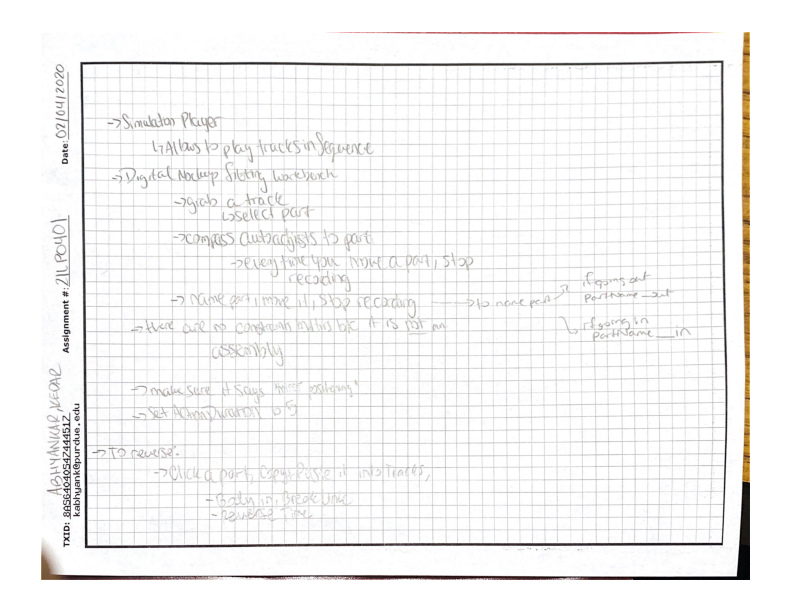 Date: 02/04/2020
Assignment #: 21LP0401
ABHYANKAR, KEDAR
TXID: 
kabhyank@purdue.edu
→Simulation Player
↳Allows to play tracks in Sequence
→Digital Mockup Fitting Workbench
→grab a track
↳select part
→compass autoadjists to part
→every time you move a part, stop
recording
→ name part, move it, stop recording → to name part
if going out
PartName _out
if going in
PartName __in
→there are no constraints in this b/c it is not an
assembly
→make sure it says "positioning"
→set ActionDuration to 5
→To reverse:
→Click a part, Copy+Paste it into Tracks,
-Body in, Break Link
-reverse Time